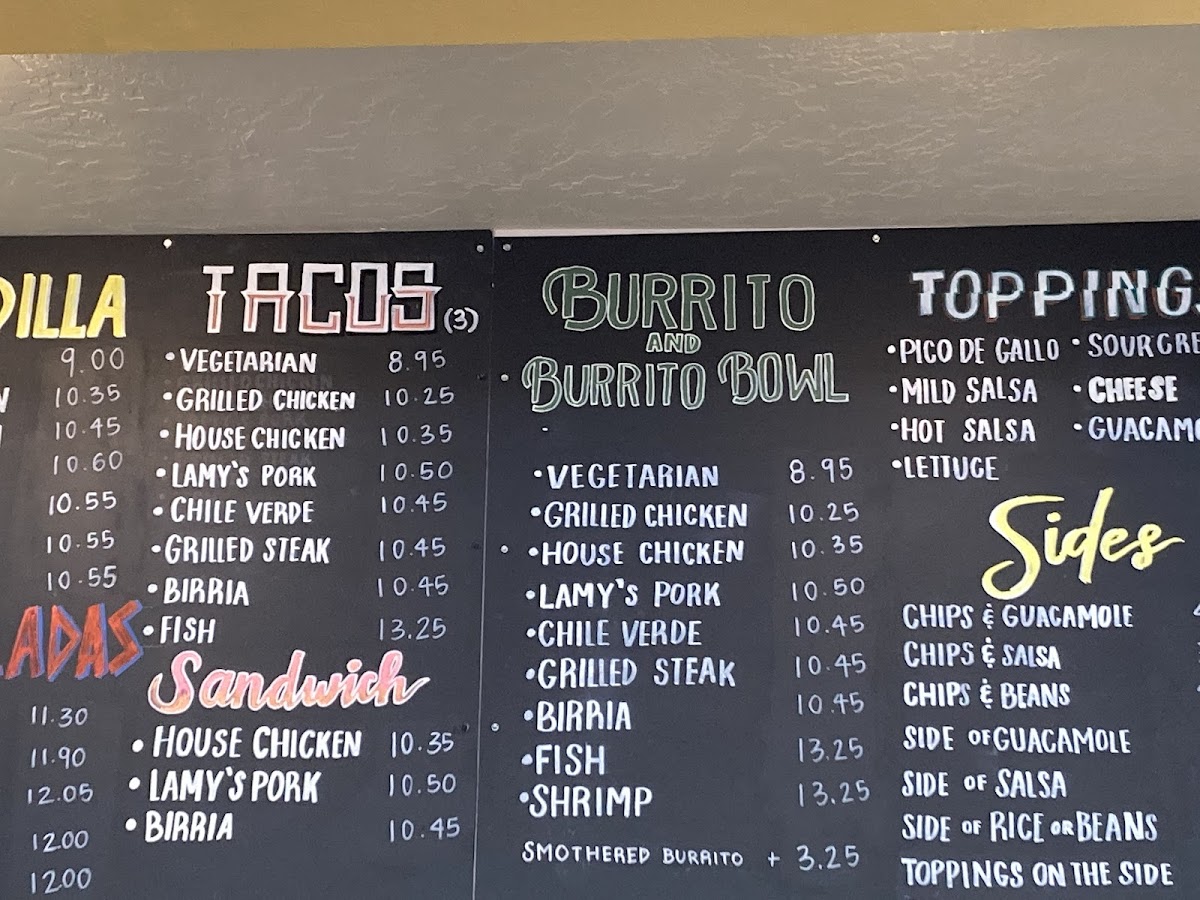 DILLA
9.00
10.35
10.45
10.60
10.55
10.55
10.55
ADAS
11.30
11.90
12.05
12.00
12.00
TACOS (3)
• VEGETARIAN 8.95
• GRILLED CHICKEN 10.25
• HOUSE CHICKEN 10.35
• LAMY'S PORK 10.50
• CHILE VERDE 10.45
• GRILLED STEAK 10.45
• BIRRIA 10.45
• FISH 13.25
Sandwich
• HOUSE CHICKEN 10.35
• LAMY'S PORK 10.50
• BIRRIA 10.45
BURRITO
AND
BURRITO BOWL
• VEGETARIAN 8.95
• GRILLED CHICKEN 10.25
• HOUSE CHICKEN 10.35
• LAMY'S PORK 10.50
• CHILE VERDE 10.45
• GRILLED STEAK 10.45
• BIRRIA 10.45
• FISH 13.25
• SHRIMP 13.25
SMOTHERED BURRITO + 3.25
TOPPINGS
• PICO DE GALLO • SOUR CRE
• MILD SALSA • CHEESE
• HOT SALSA • GUACAMO
• LETTUCE
Sides
CHIPS & GUACAMOLE
CHIPS & SALSA
CHIPS & BEANS
SIDE OF GUACAMOLE
SIDE OF SALSA
SIDE OF RICE OR BEANS
TOPPINGS ON THE SIDE